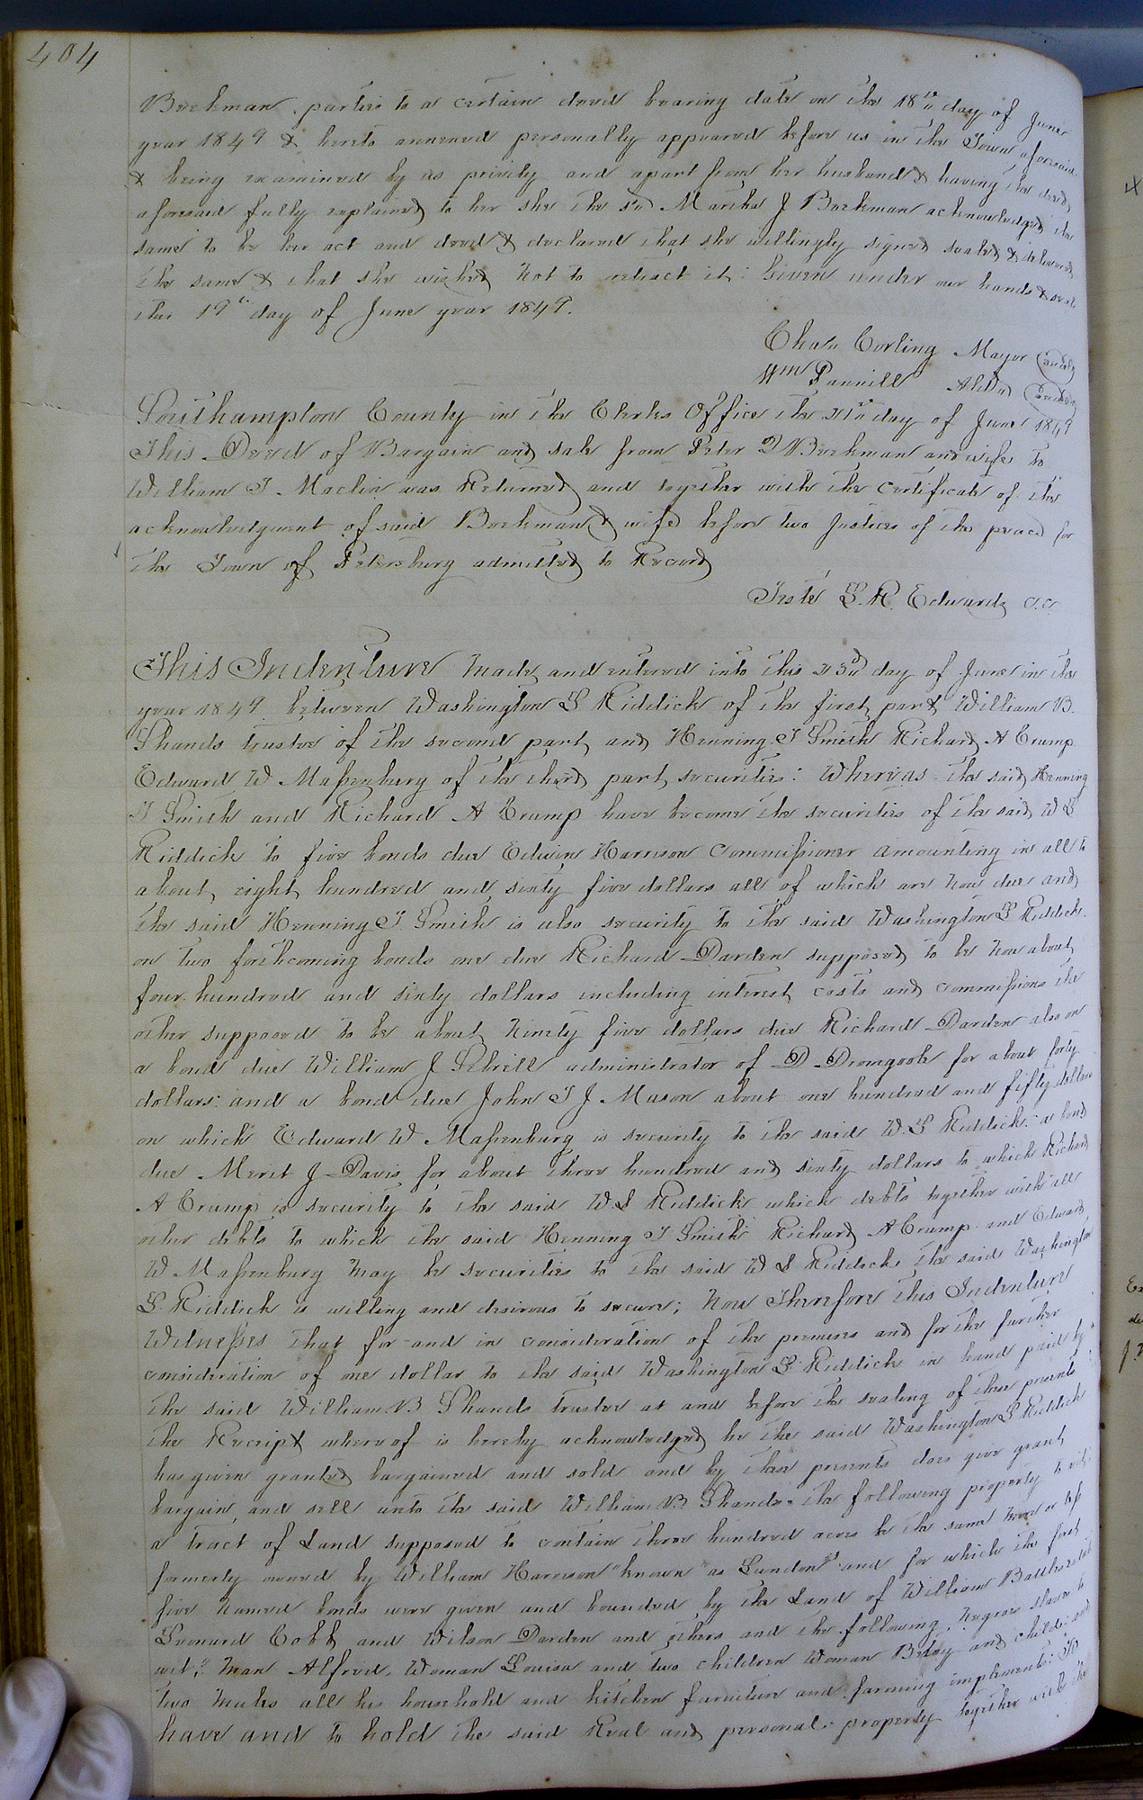 404
Beekman parties to a certain deed bearing date on the 18th day of June
year 1849 & hereto annexed personally appeared before us in the Town aforesaid
& being examined by us privily and apart from her husband & having the deed
aforesaid fully explained to her she the sd Martha J Beekman acknowledged the
same to be her act and deed & declared that she willingly signed sealed & delivered
the same & that she wished not to retract it: Given under our hands & seals
this 19th day of June year 1849.
Chas Corling Mayor
Wm Pannill Aldn
Southampton County in the Clerks Office the day of June 1849
This Deed of Bargain and sale from Peter D Beekman and wife to
William T. Maclin was Returned and together with the Certificate of the
acknowledgment of said Beekman & wife before two Justices of the peace for
the Town of Petersburg admitted to Record
Teste L. R. Edwards c.c
This Indenture Made and entered into this 23d day of June in the
year 1849 between Washington L Riddick of the first part William B.
Shands trustee of the second part and Henning T Smith Richard A Crump
Edward W Massenburg of the third part securities: Whereas the said Henning
T Smith and Richard A Crump have become the securities of the said W L
Riddick to five bonds due Edwin Harrison Commissioner amounting in all to
about eight hundred and sixty five dollars all of which are now due and
the said Henning T. Smith is also security to the said Washington L Riddick
on two forthcoming bonds one due Richard Darden supposed to be now about
four hundred and sixty dollars including interest costs and commissions the
other supposed to be about Ninety five dollars due Richard Darden also on
a bond due William J Sebrell administrator of D Dromgoole for about forty
dollars: and a bond due John T J. Mason about one hundred and fifty dollars
on which Edward W Massenburg is security to the said W. L Riddick: a bond
due Merit J Davis for about three hundred and sixty dollars to which Richard
A Crump is security to the said W L Riddick which debts together with all
other debts to which the said Henning T Smith Richard A Crump and Edward
W Massenburg may be securities to the said W L Riddick the said Washington
L Riddick is willing and desirous to secure; Now Therefore This Indenture
Witnesses that for and in consideration of the premises and for the further
consideration of one dollar to the said Washington L Riddick in hand paid by
the said William B Shands trustee at and before the sealing of these presents
the Receipt whereof is hereby acknowledged he the said Washington L Riddick
has given granted bargained and sold and by these presents does give grant
bargain, and sell unto the said William B Shands the following property to wit:
a tract of Land supposed to contain three hundred acres be the same more or less
formerly owned by William Harrison known as "Lundons" and for which the first
five named bonds were given and bounded by the Land of William
Leonard Cobb and Wilson Darden and others and the following negroe slaves to
wit; Man Alfred, Woman Louisa and two children Woman Betsy and child: and
two mules all his household and kitchen furniture and farming implements: To
have and to hold the said Real and personal property together with the